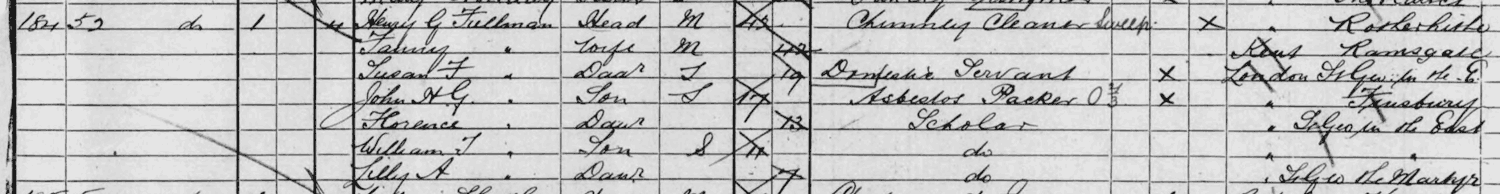 184 52 do 1 Henry G Fullman Head M 43 Chimney Cleaner Sweep X " Rotherhithe
Fanny " Wife M 42 Kent Ramsgate
Susan F " Daur S 19 Domestic Servant X London St Geo. in the E.
John H G. " Son S 17 Asbestos Packer X " Finsbury
Florence " Daur 13 Scholar " St Geo in the East
William F " Son S 11 do " "
Lilly A " Daur 7 do " St Geo the Martyr